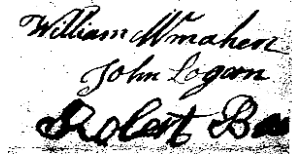 William McMahen
John Logan
Robert